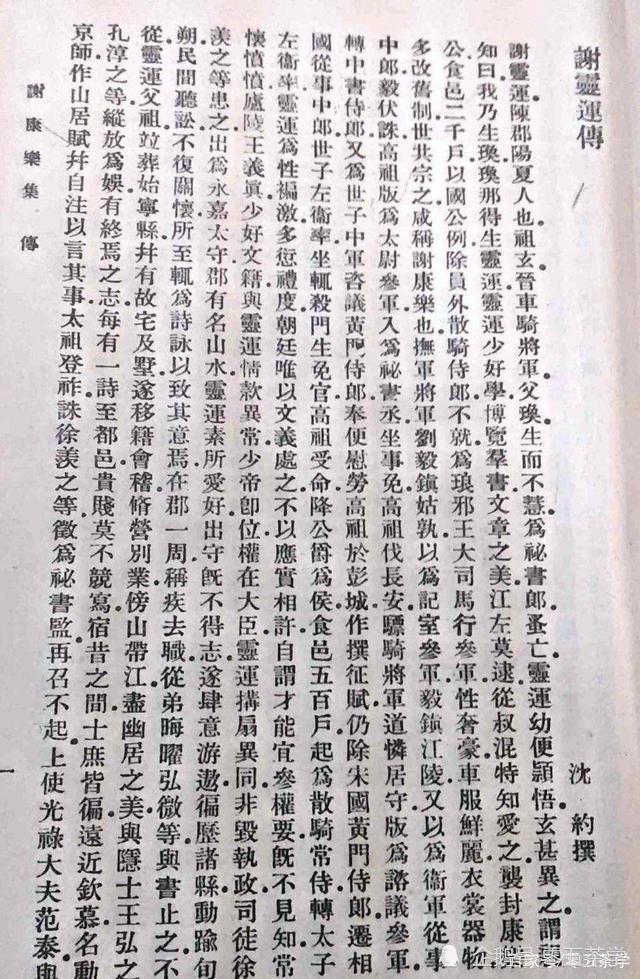 謝靈運傳
沈約撰
謝靈運陳郡陽夏人也祖玄晉車騎將軍父瑍生而不慧爲祕書郎蚤亡靈運幼便頴悟玄甚異之謂
知曰我乃生瑍瑍那得生靈運靈運少好學博覽羣書文章之美江左莫逮從叔混特知愛之襲封康
公食邑二千戶以國公例除員外散騎侍郎不就爲琅邪王大司馬行參軍性奢豪車服鮮麗衣裳器物
多改舊制世共宗之咸稱謝康樂也撫軍將軍劉毅鎭姑孰以爲記室參軍毅鎭江陵又以爲衞軍從事
中郎毅伏誅高祖版爲太尉參軍入爲祕書丞坐事免高祖伐長安驃騎將軍道憐居守版爲諮議參軍
轉中書侍郎又爲世子中軍咨議黃門侍郎奉使慰勞高祖於彭城作撰征賦仍除宋國黃門侍郎遷相
國從事中郎世子左衞率坐輒殺門生免官高祖受命降公爵爲侯食邑五百戶起爲散騎常侍轉太子
左衞率靈運爲性褊激多愆禮度朝廷唯以文義處之不以應實相許自謂才能宜參權要旣不見知常
懷憤憤廬陵王義眞少好文籍與靈運情款異常少帝卽位權在大臣靈運搆扇異同非毀執政司徒徐
羨之等患之出爲永嘉太守郡有名山水靈運素所愛好出守旣不得志遂肆意游遨徧歷諸縣動踰旬
朔民間聽訟不復關懷所至輒爲詩詠以致其意焉在郡一周稱疾去職從弟晦曜弘微等與書止之不
從靈運父祖竝葬始寧縣幷有故宅及墅遂移籍會稽脩營別業傍山帶江盡幽居之美與隱士王弘之
孔淳之等縱放爲娛有終焉之志每有一詩至都邑貴賤莫不競寫宿昔之間士庶皆徧遠近欽慕名動
京師作山居賦幷自注以言其事太祖登祚誅徐羨之等徵爲祕書監再召不起上使光祿大夫范泰與
謝康樂集 傳
一